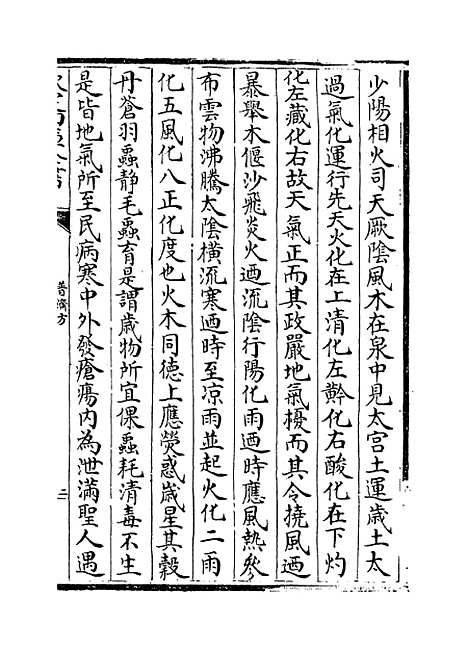 少陽相火司天厥陰風木在泉中見太宫土運歲土太
過氣化運行先天火化在上清化左黅化右酸化在下灼
化左藏化右故天氣正而其政嚴地氣擾而其令撓風迺
暴舉木偃沙飛炎火迺流陰行陽化雨迺時應風熱參
布雲物沸騰太陰橫流寒迺時至凉雨並起火化二雨
化五風化八正化度也火木同德上應熒惑歲星其穀
丹蒼羽蟲静毛蟲育是謂歲物所宜倮蟲耗清毒不生
是皆地氣所至民病寒中外發瘡瘍内為泄滿聖人遇
普濟方
二